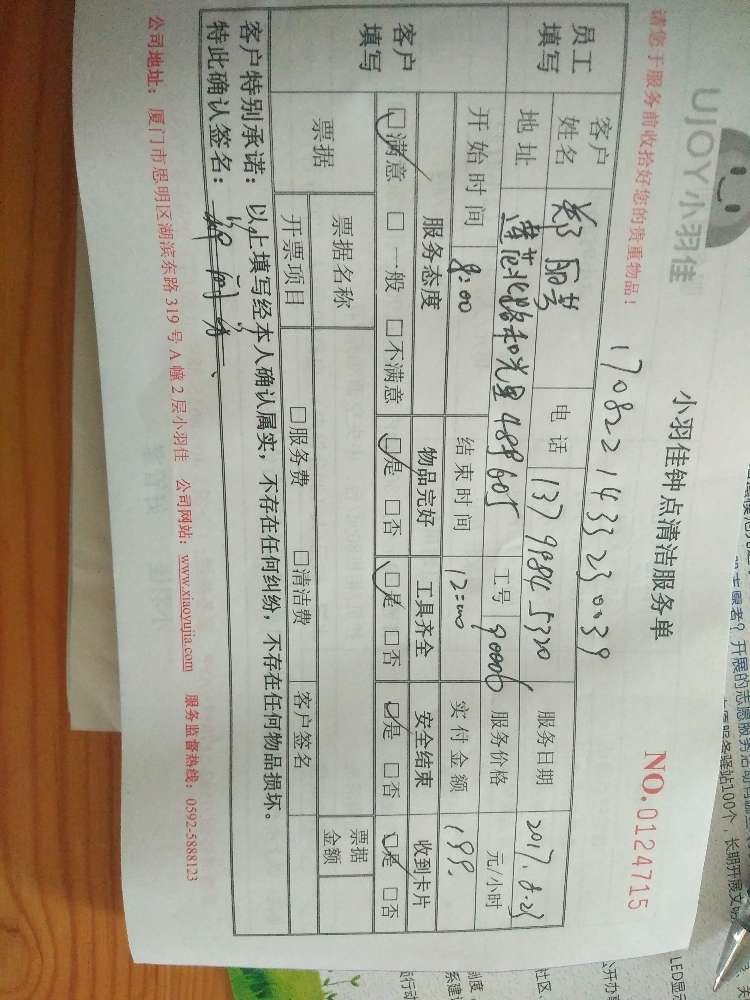 UJOY小羽佳
小羽佳钟点清洁服务单
NO.0124715
请您于服务前收拾好您的贵重物品！
1708221433230039
员工填写
客户姓名 郑丽 电话 13799845320 服务日期 2017.8.23
地址 莲花北路和光里48#605 工号 90006 服务价格 元/小时
开始时间 8:00 结束时间 12:00 实付金额 199.
客户填写
服务态度 物品完好 工具齐全 安全结束 收到卡片
☑满意 □一般 □不满意 ☑是 □否 ☑是 □否 ☑是 □否 ☑是 □否
票据 票据名称 票据金额
开票项目 □服务费 □清洁费 客户签名
客户特别承诺：以上填写经本人确认属实，不存在任何纠纷，不存在任何物品损坏。
特此确认签名：
公司地址：厦门市思明区湖滨东路319号A幢2层小羽佳 公司网站：www.xiaoyujia.com 服务监督热线：0592-5888123
开展的志愿服务活动有
愿服务驿站100个，长期开展文明
LED显